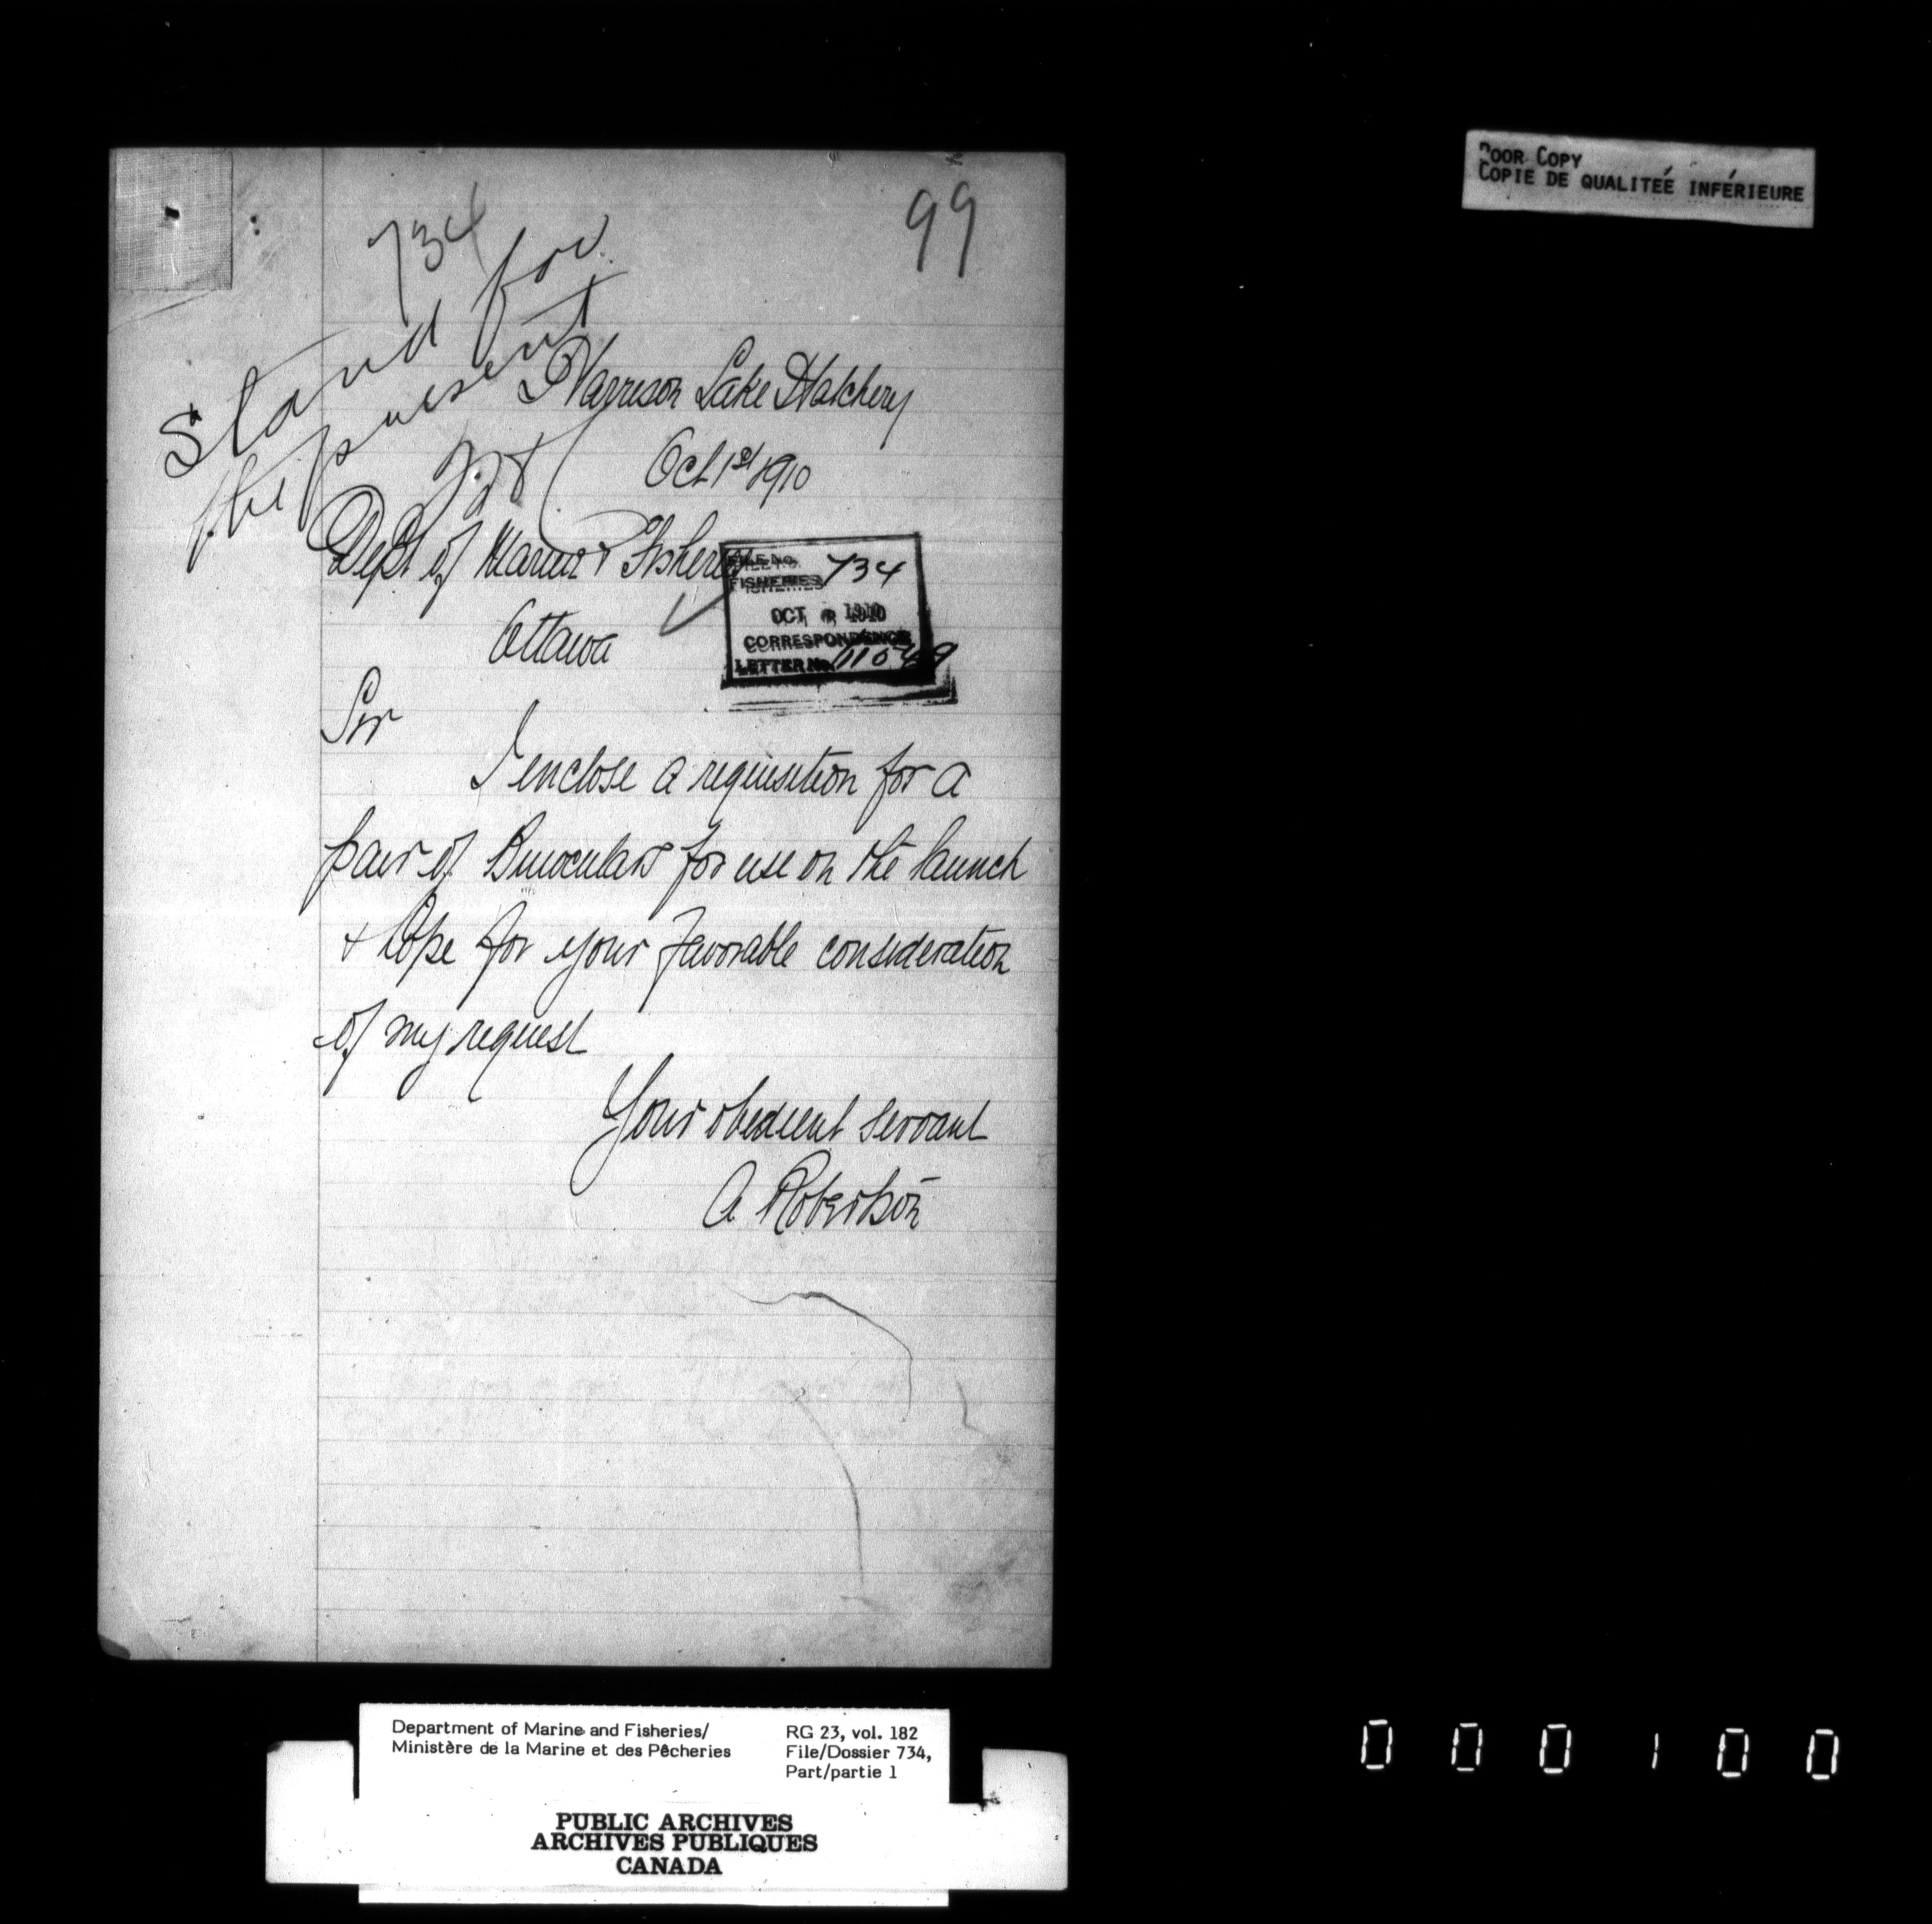 POOR COPY
COPIE DE QUALITEÉ INFÉRIEURE
99
734
Stand for
the present
Harrison Lake Hatchery
Oct 1st 1910
Dept of Marine & Fisheries
Ottawa
FILE NO.
FISHERIES 734
OCT 1910
CORRESPONDENCE
LETTER No.
Sir
I enclose a requisition for a
pair of Binoculars for use on the launch
& hope for your favorable consideration
of my request
Your obedient servant
A Robertson
Department of Marine and Fisheries/
Ministère de la Marine et des Pêcheries
RG 23, vol. 182
File/Dossier 734,
Part/partie 1
PUBLIC ARCHIVES
ARCHIVES PUBLIQUES
CANADA
000100